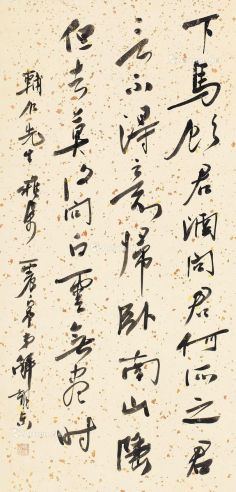 下馬飲君酒問君何所之君
言不得意歸臥南山陲
但去莫復問白雲無盡時
輔仁先生雅屬